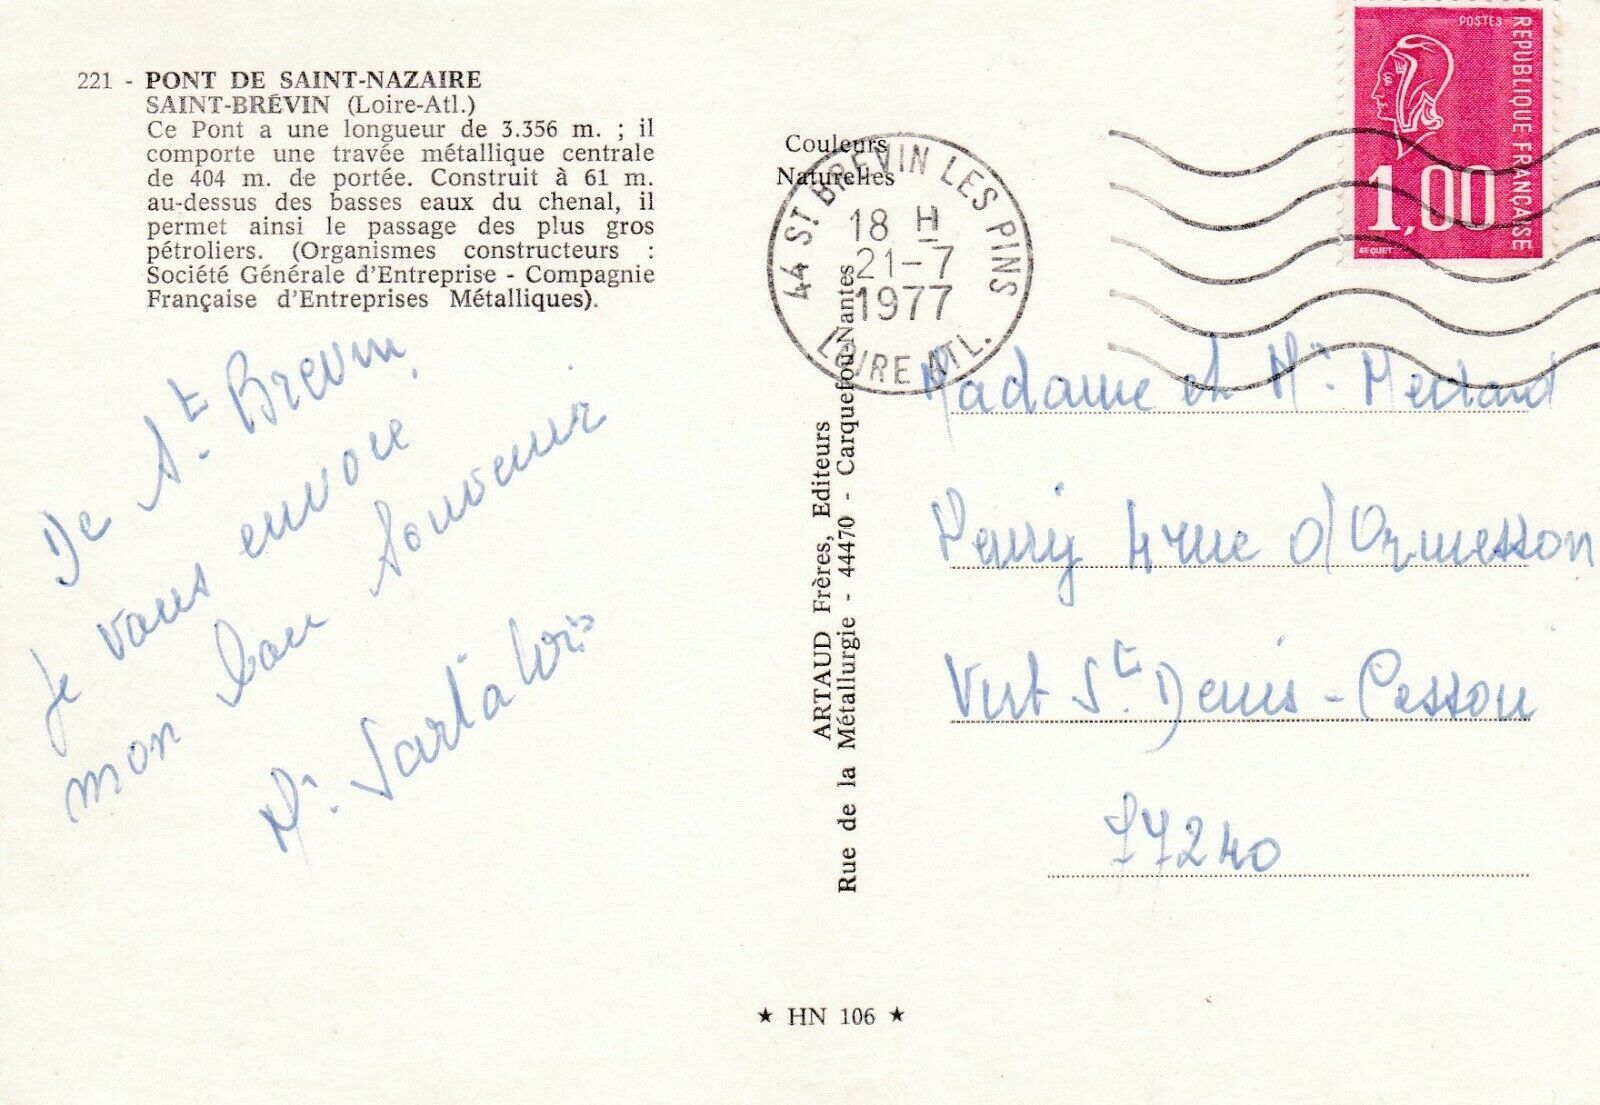 221 - PONT DE SAINT-NAZAIRE
SAINT-BRÉVIN (Loire-Atl.)
Ce Pont a une longueur de 3.356 m. ; il
comporte une travée métallique centrale
de 404 m. de portée. Construit à 61 m.
au-dessus des basses eaux du chenal, il
permet ainsi le passage des plus gros
pétroliers. (Organismes constructeurs :
Société Générale d'Entreprise - Compagnie
Française d'Entreprises Métalliques).
De St. Brevin
je vous envoie
mon bon Souvenir
Couleurs
Naturelles
44 ST BREVIN LES PINS
18 H
21-7
1977
LOIRE ATL.
ARTAUD Frères, Editeurs
Rue de la Métallurgie - 44470 - Carquefou-Nantes
POSTES
REPUBLIQUE FRANÇAISE
1,00
BEQUET
Madame et Mr. Medard
4 rue d'Ormesson
Vert St. Denis - Cesson
77240
★ HN 106 ★